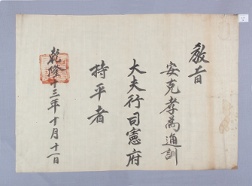 敎旨
安克孝爲通訓
大夫行司憲府
持平者
乾隆十三年十月十一日